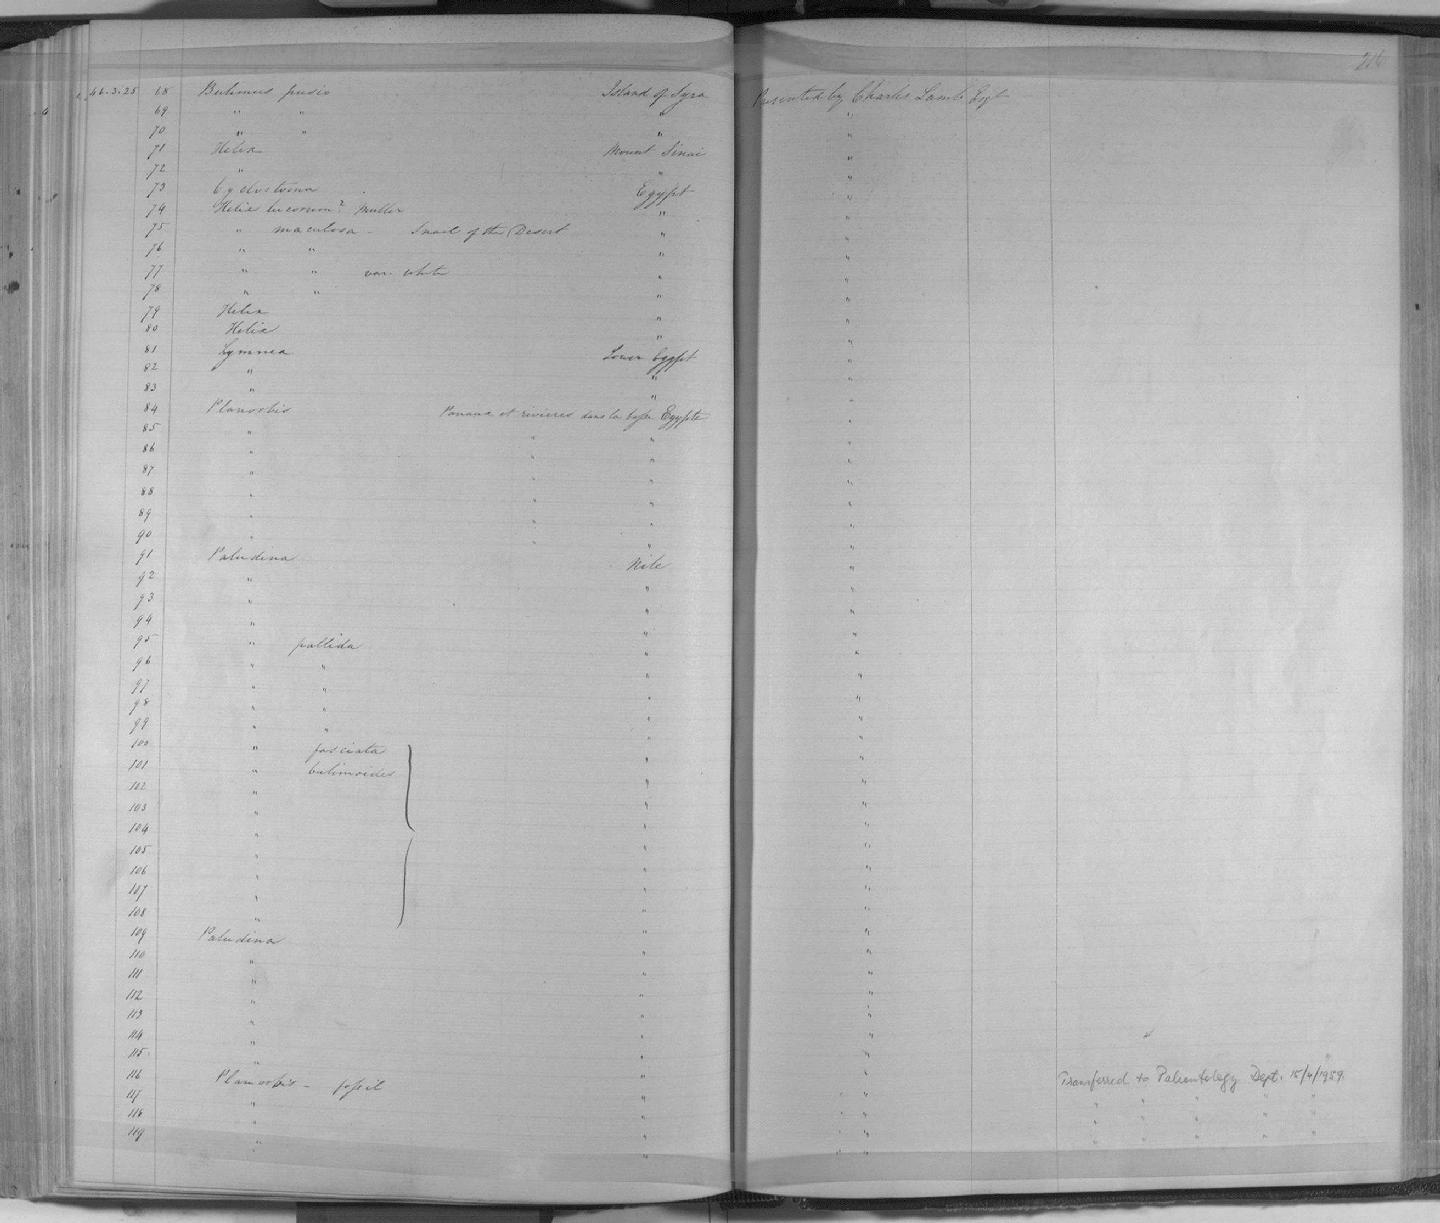 216
46.3.25 68 Bulimus pusio Island of Syra Presented by Charles Lamb Esqr
69 " " " "
70 " " " "
71 Helix Mount Sinai "
72 " " "
73 Cyclostoma Egypt "
74 Helix lucorum? Muller " "
75 " maculosa - Snail of the Desert " "
76 " " " "
77 " " var. white " "
78 " " " "
79 Helix " "
80 Helix " "
81 Lymnea Lower Egypt "
82 " " "
83 " " "
84 Planorbis et rivieres dans la basse Egypte "
85 " " " "
86 " " " "
87 " " " "
88 " " " "
89 " " " "
90 " " " "
91 Paludina Nile "
92 " " "
93 " " "
94 " " "
95 " pallida " "
96 " " " "
97 " " " "
98 " " " "
99 " " " "
100 " fasciata " "
101 " bulimoides " "
102 " " "
103 " " "
104 " " "
105 " " "
106 " " "
107 " " "
108 " " "
109 Paludina " "
110 " " "
111 " " "
112 " " "
113 " " "
114 " " "
115 " " "
116 Planorbis - fossil " " Transferred to Paleontology Dept. 15/4/1959.
117 " " " " " " " " "
118 " " " "
119 " " " " " " " " "